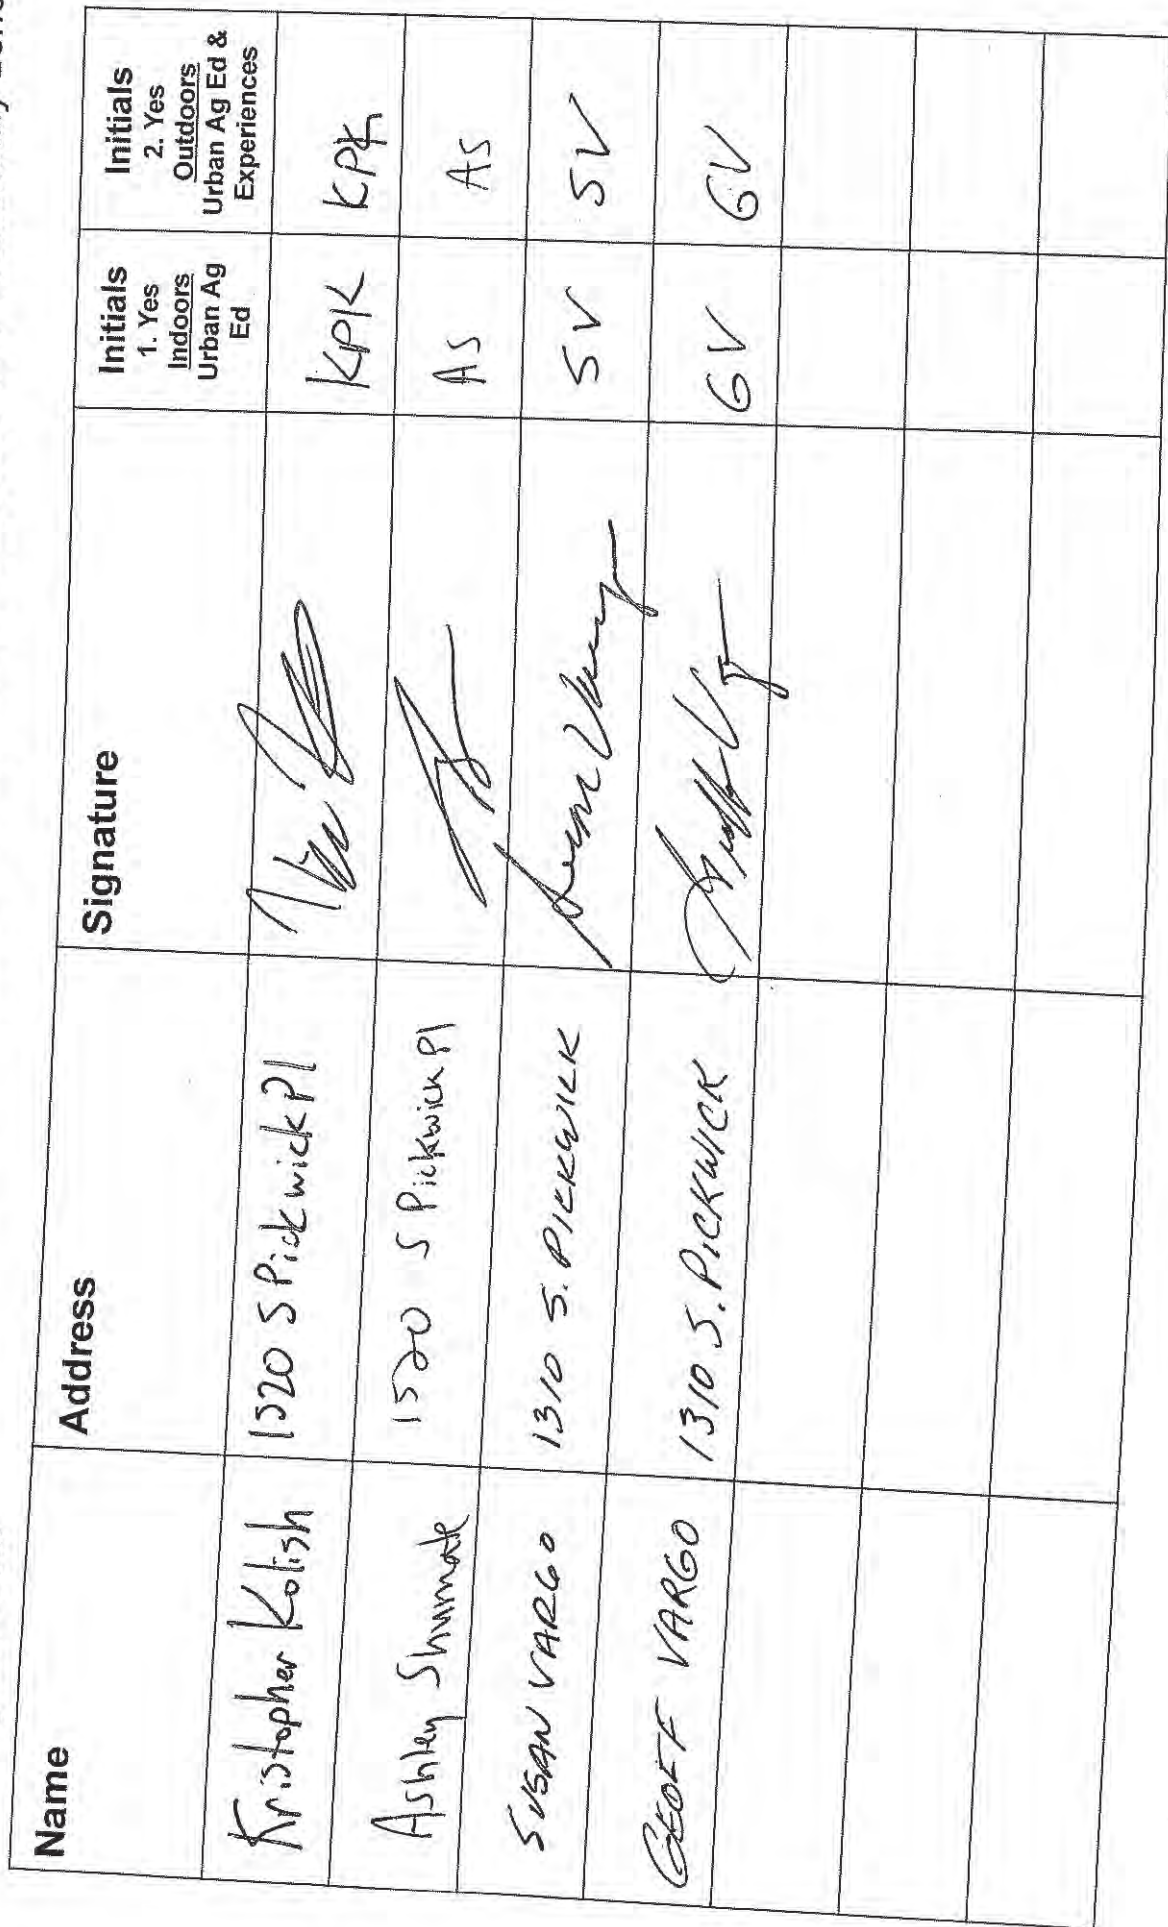 Name Address Signature Initials 1. Yes Indoors Urban Ag Ed Initials 2. Yes Outdoors Urban Ag Ed & Experiences
Kristopher Kolish 1520 S Pickwick Pl KPK KPK
Ashley Shumate 1520 S Pickwick Pl AS AS
SUSAN VARGO 1310 S. PICKWICK SV SV
GEOFF VARGO 1310 S. PICKWICK GV GV